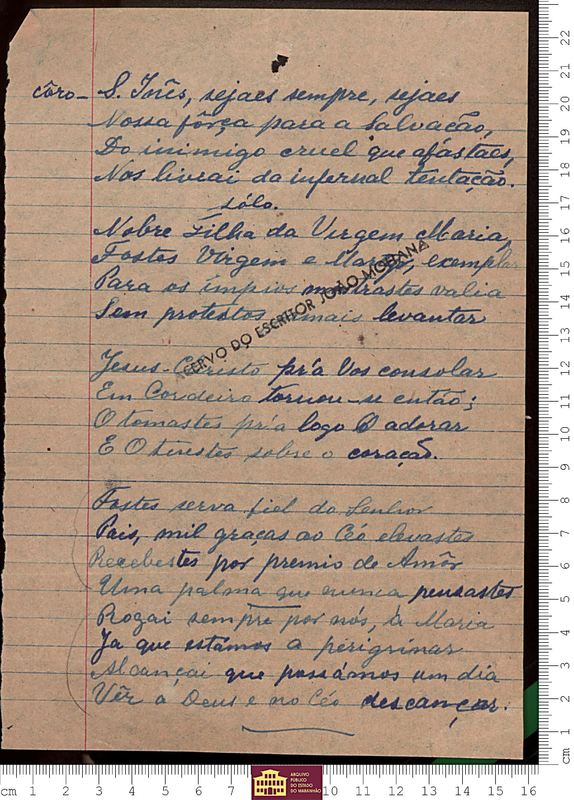 côro – S. Inês, sejaes sempre, sejaes
Nossa fôrça para a Salvação,
Do inimigo cruel que afástaes,
Nos livrai da infernal tentação.
sólo.
Nobre Filha da Virgem Maria,
Fostes Virgem e Martir, exemplar
Para os ímpios mostrástes valia
Sem protestos jamais levantar
ACERVO DO ESCRITOR JOÃO MOHANA
Jesus-Christo pr'a Vos consolar
Em Cordeiro tornou-se então;
O tomastes pr'a logo O adorar
E O tivestes sobre o coração.
Fostes serva fiel do Senhor
Pois, mil graças ao Céo elevastes
Recebestes por premio de Amôr
Uma palma que nunca pensastes
Rogai sempre por nós, à Maria
Ja que estámos a perigrinar
Alcançai que possámos um dia
Vêr a Deus e no Céo descançar.
ARQUIVO
PÚBLICO
DO ESTADO
DO MARANHÃO
cm 1 2 3 4 5 6 7 10 11 12 13 14 15 16
cm 1 2 3 4 5 6 7 8 9 10 11 12 13 14 15 16 17 18 19 20 21 22